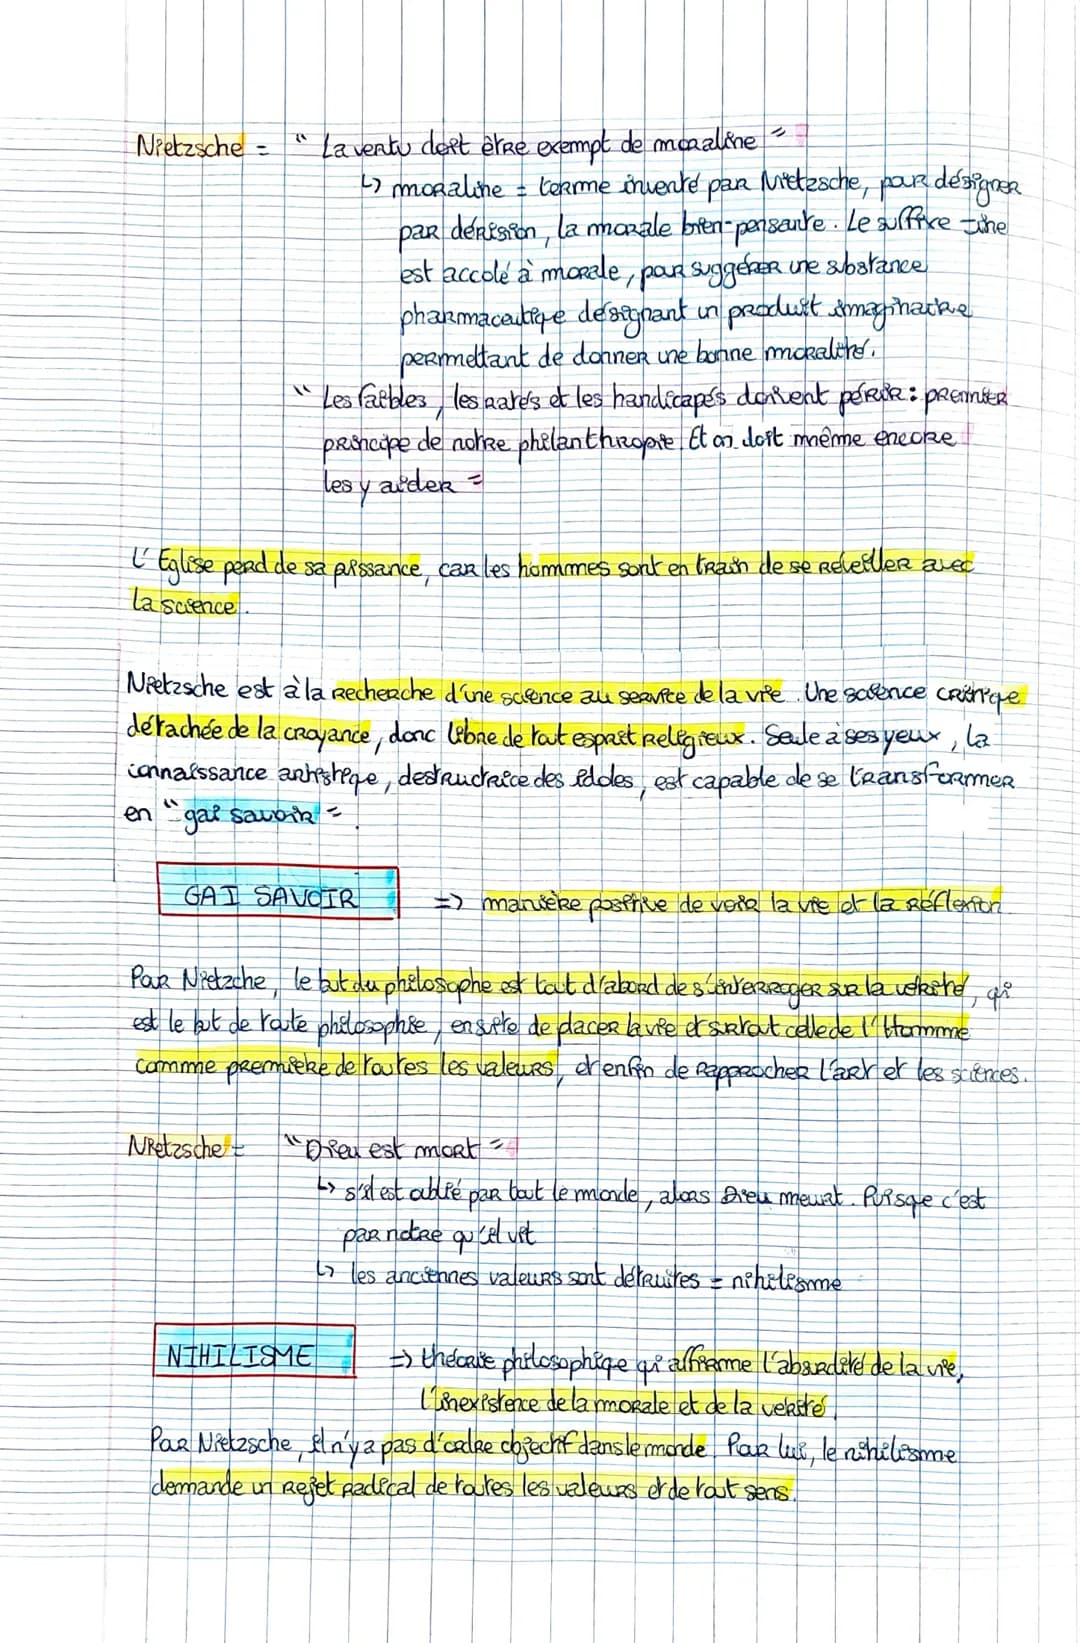 Nietzsche = " La vertu doit être exempt de moraline "
↳ moraline = terme inventé par Nietzsche, pour désigner
par dérision, la morale bien-pensante. Le suffixe -ine
est accolé à morale, pour suggérer une substance
pharmaceutique désignant un produit imaginaire
permettant de donner une bonne moralité.
" Les faibles, les ratés et les handicapés doivent périr : premier
principe de notre philanthropie. Et on doit même encore
les y aider "
L'Eglise perd de sa pissance, car les hommes sont en train de se réveiller avec
la science.
Nietzsche est à la recherche d'une science au service de la vie. Une science critique
détachée de la croyance, donc libre de tout esprit religieux. Seule à ses yeux, la
connaissance artistique, destructrice des idoles, est capable de se transformer
en " gai savoir ".
GAI SAVOIR => manière positive de voir la vie et la réflexion
Pour Nietzche, le but du philosophe est tout d'abord de s'interroger sur la vérité, qui
est le but de toute philosophie, ensuite de placer la vie et surtout celle de l'Homme
comme première de toutes les valeurs, et enfin de rapprocher l'art et les sciences.
Nietzsche = " Dieu est mort "
↳ s'il est oublié par tout le monde, alors Dieu meurt. Puisque c'est
par notre qu'il vit
↳ les anciennes valeurs sont détruites = nihilisme
NIHILISME => théorie philosophique qui affirme l'absurdité de la vie,
l'inexistence de la morale et de la vérité.
Pour Nietzsche, il n'y a pas d'ordre objectif dans le monde. Pour lui, le nihilisme
demande un rejet radical de toutes les valeurs et de tout sens.